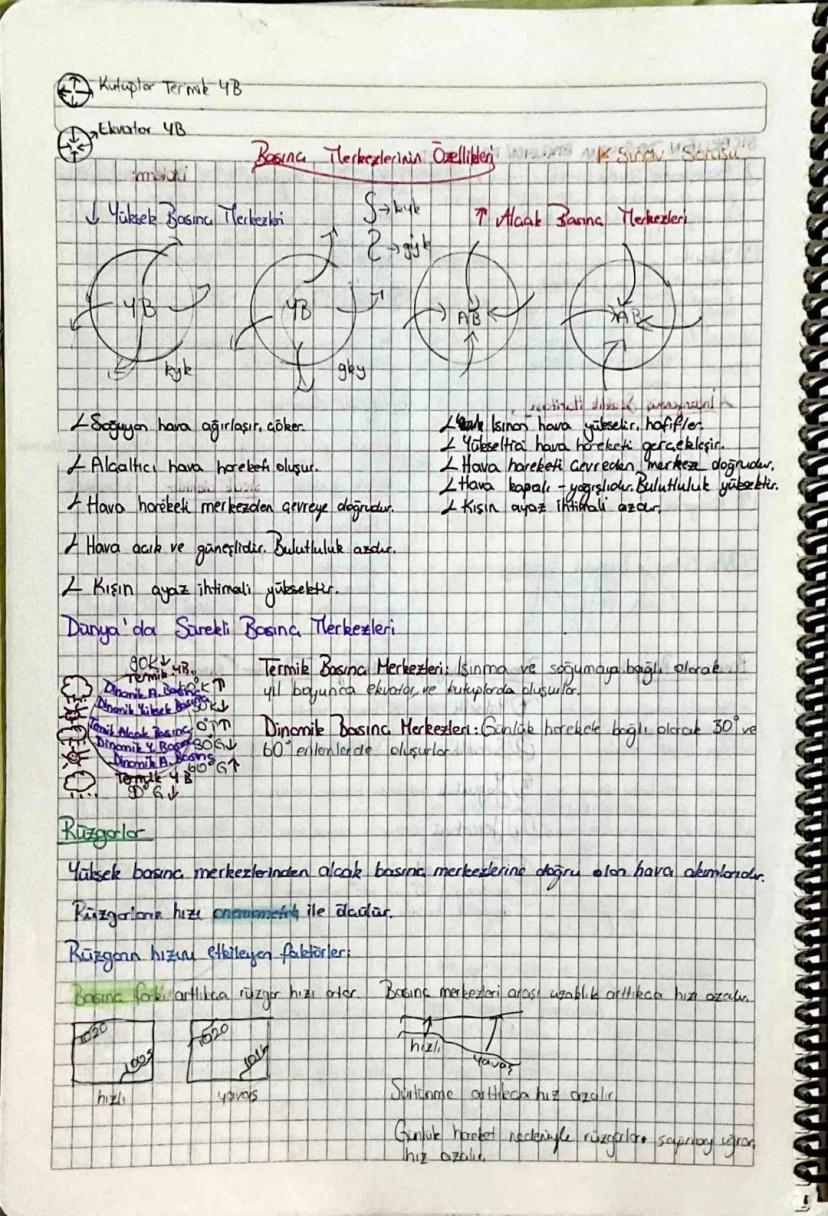 Kutuplar Termik YB
Ekvator YB
Basınç Merkezlerinin Özellikleri
Sınav Sorusu
↓ Yüksek Basınç Merkezleri
→ kyk
→ gyk
↑ Alçak Basınç Merkezleri
YB
YB
AB
AB
kyk
gky
Soğuyan hava ağırlaşır, çöker.
Alçaltıcı hava hareketi oluşur.
Hava hareketi merkezden çevreye doğrudur.
Hava açık ve güneşlidir. Bulutluluk azdır.
Kışın ayaz ihtimali yüksektir.
Isınan hava yükselir, hafifler.
Yükseltici hava hareketi gerçekleşir.
Hava hareketi çevreden merkeze doğrudur.
Hava kapalı - yağışlıdır. Bulutluluk yüksektir.
Kışın ayaz ihtimali azdır.
Dünya'da Sürekli Basınç Merkezleri
90K↓
Termik YB.
Dinamik A. Basınç 60°K ↑
Dinamik Yüksek Basınç 30K↓
Termik Alçak Basınç 0° ↑
Dinamik Y. Basınç 30G↓
Dinamik A. Basınç 60°G↑
Termik YB
90°G↓
Termik Basınç Merkezleri: Isınma ve soğumaya bağlı olarak
yıl boyunca ekvator ve kutuplarda oluşurlar.
Dinamik Basınç Merkezleri: Günlük harekete bağlı olarak 30° ve
60° enlemlerde oluşurlar
Rüzgarlar
Yüksek basınç merkezlerinden alçak basınç merkezlerine doğru olan hava akımlarıdır.
Rüzgarların hızı anemometre ile ölçülür.
Rüzgarın hızını etkileyen faktörler:
Basınç farkı arttıkça rüzgar hızı artar.
Basınç merkezleri arası uzaklık arttıkça hız azalır.
1020
1005
1020
hızlı
yavaş
hızlı
yavaş
Sürtünme arttıkça hız azalır
Günlük hareket nedeniyle rüzgarlar sapmaya uğrar,
hız azalır.